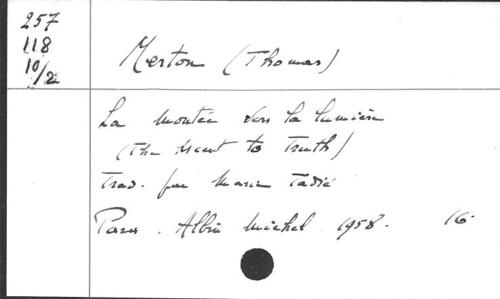 257
118
10/2
Merton (Thomas)
La montée vers la lumière
(The Ascent to Truth)
Trad. par Marie Tadié
Paris. Albin Michel. 1958. 16